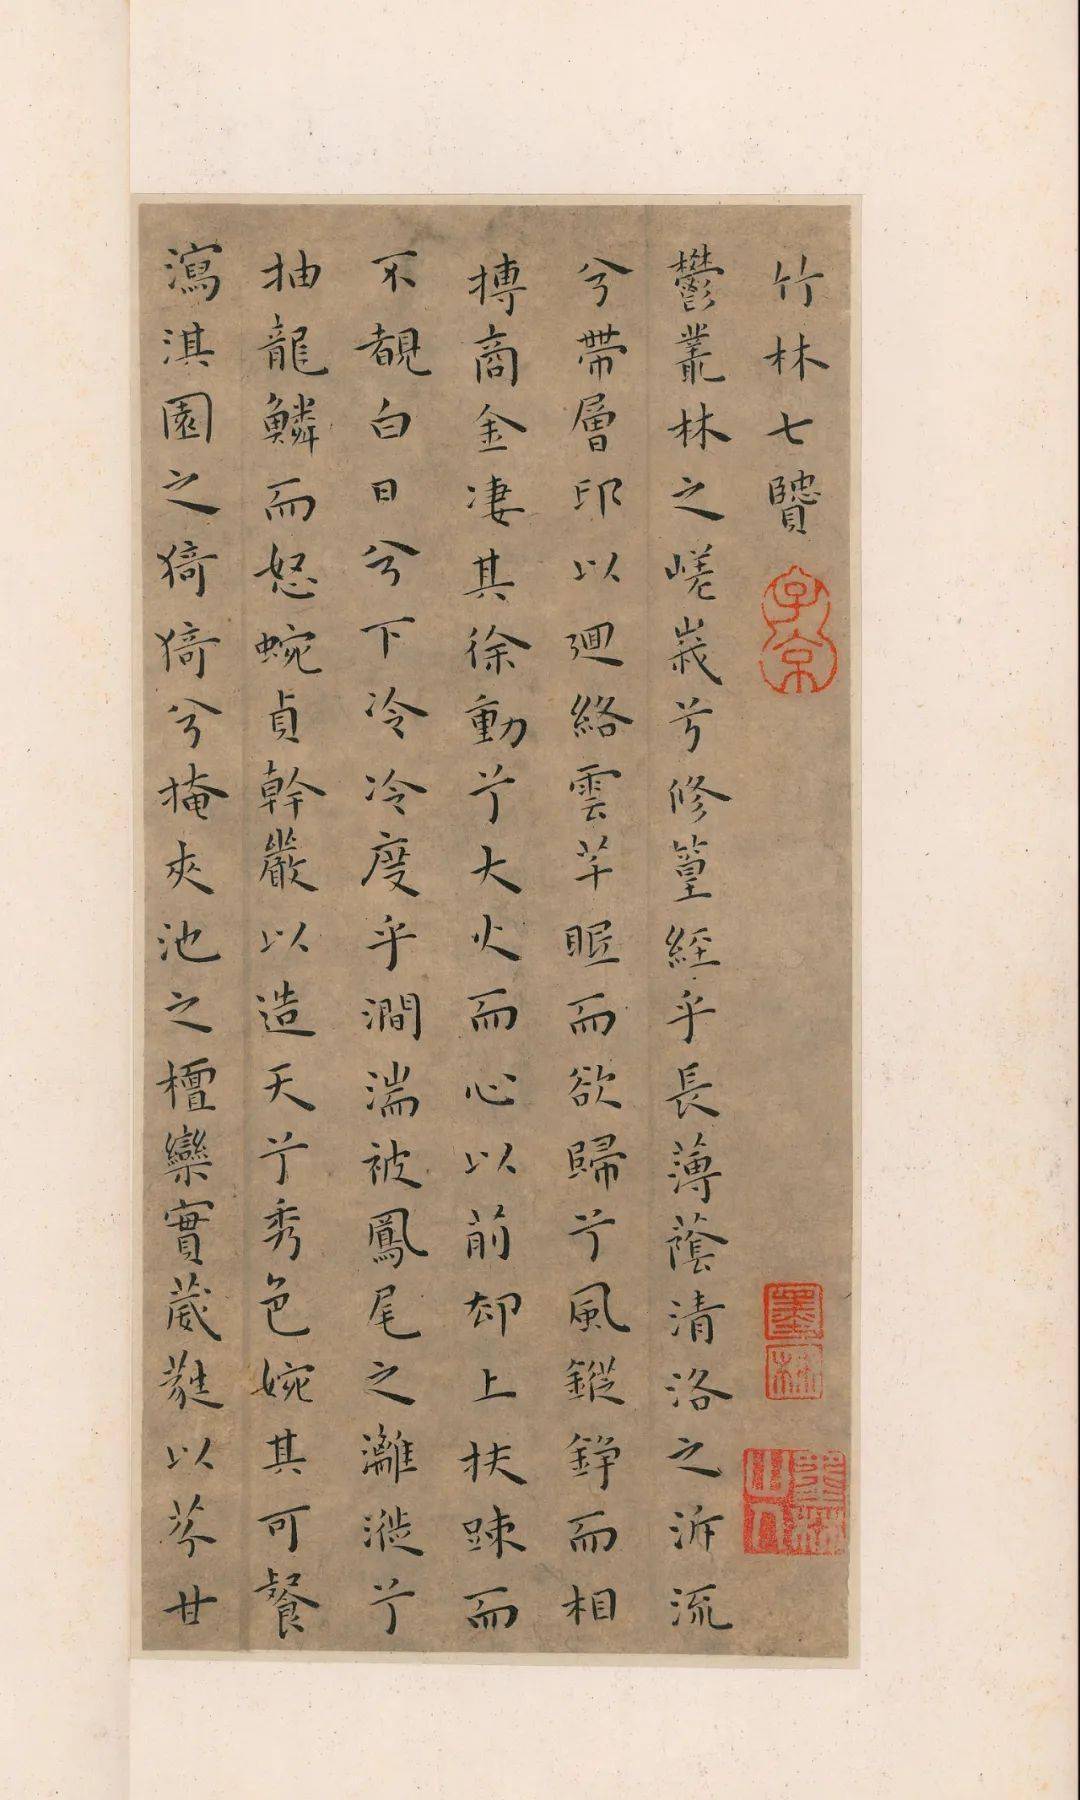 竹林七賢
鬱叢林之嵯峩兮修篁經乎長薄蔭清洛之泝流
兮帶層邙以迴絡雲芊眠而欲歸兮風鏦錚而相
摶商金凄其徐動兮大火而心以前却上扶踈而
不覩白日兮下冷冷度乎澗湍被鳳尾之灕漇兮
抽龍鱗而怒蜿貞幹巖以造天兮秀色婉其可餐
瀉淇園之猗猗兮掩夾池之檀欒實葳蕤以芬甘
子京
墨林
墨林山人